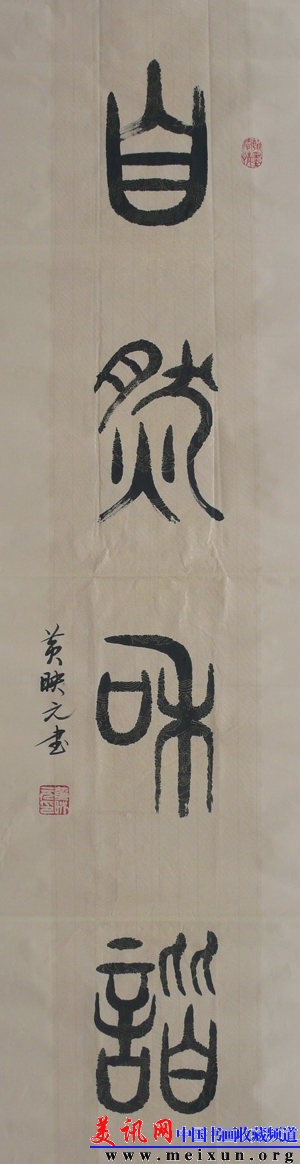 自然和諧
黄映元书
美讯网 中国书画收藏频道
www.meixun.org